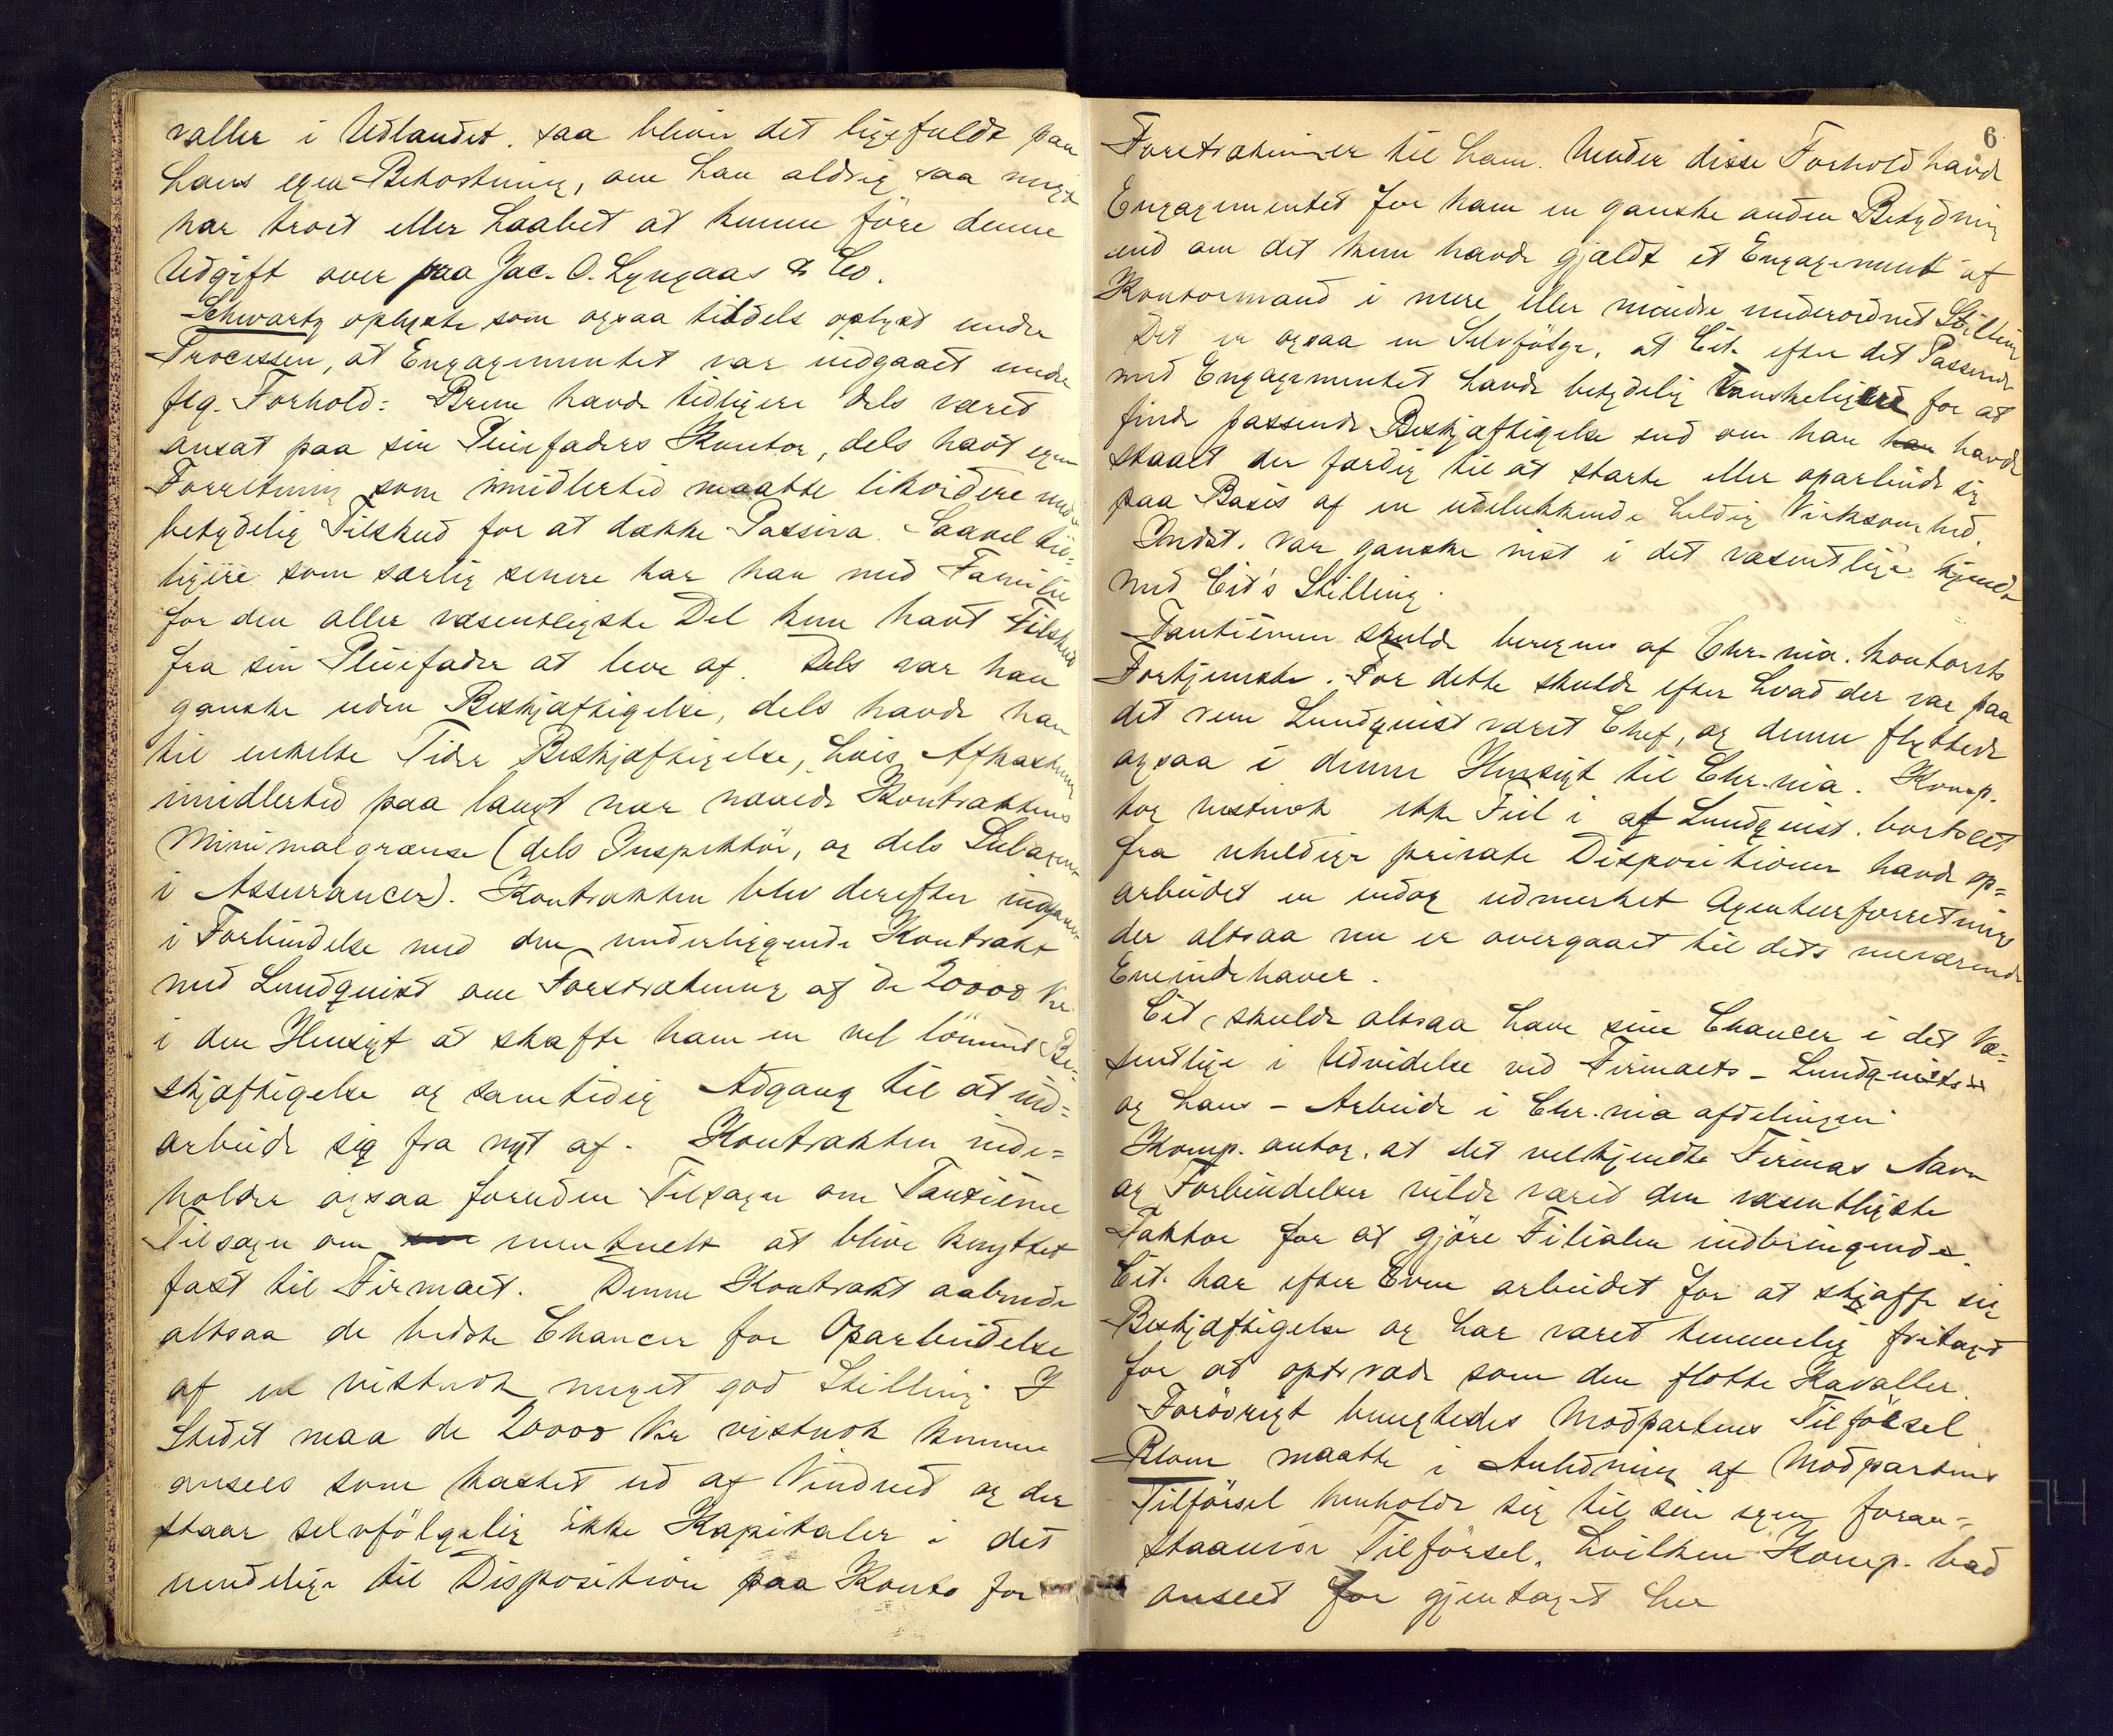 valler i Udlandet. saa bliver det ligefuldt paa
hans egen Bekostning, om han aldrig saa meget
har troet eller haabet at kunne före denne
Udgift over paa Jac. O. Lyngaas & Co.
Schwartz oplyste som ogsaa tildels oplyst under
Processen, at Engagementet var indgaaet under
flg. Forhold: Brun havde tidligere dels været
ansat paa sin Pleiefaders Kontor, dels havt egen
Forretning som imidlertid maatte likvidere med
betydelig Tilskud for at dække Passiva. Saavel tid-
ligere som særlig senere har han med Familie
for den aller væsentligste Del kun havt Tilskud
fra sin Pleiefader at leve af. Dels var han
ganske uden Beskjæftigelse, dels havde han
til enkelte Tider Beskjæftigelse, hvis Afkastning
imidlertid paa langt nær naaede Kontraktens
Minimalgrænse (dels Inspektör, og dels Subagent
i Assurancer). Kontrakten blev derefter indgaaet
i Forbindelse med den underliggende Kontrakt
med Lundquist om Forstrækning af de 20000 Kr
i den Hensigt at skaffe ham en vel lönnet Be-
skjæftigelse og samtidig Adgang til at ind=
arbeide sig fra nyt af. Kontrakten inde=
holder ogsaa foruden Tilsagn om Tantième
Tilsagn om eventuelt at blive knyttet
fast til Firmaet. Denne Kontrakt aabnede
altsaa de bedste Chancer for Oparbeidelse
af en vistnok meget god Stilling. I
Stedet maa de 20000 Kr vistnok kunne
ansees som kastet ud af Vinduet og der
staar selvfölgelig ikke Kapitaler i det
uendelige til Disposition paa Konto for
6
Forstrækninger til ham. Under disse Forhold havde
Engagementet for ham en ganske anden Betydning
end om det kun havde gjældt et Engagement af
Kontormand i mere eller mindre underordnet Stilling
Det er ogsaa en Selvfölge, at Cit. efter det Passerede
med Engagementet havde betydelig Vanskeligere for at
finde passende Beskjæftigelse end om han havde
staaet der færdig til at starte eller oparbeide sig
paa Basis af en udelukkende heldig Virksomhed.
Indst. var ganske vist i det væsentlige kjendt
med Cit's Stilling.
Tantiemen skulde beregnes af Chr.nia. kontorets
Fortjeneste. For dette skulde efter hvad der var paa
det rene Lundquist været Chef, og denne flyttede
ogsaa i denne Hensigt til Chr.nia. Komp.
tog vistnok ikke Feil i at Lundquist. bortseet
fra uheldige private Dispositioner havde op=
arbeidet en endog udmerket Agenturforretning
der altsaa nu er overgaaet til dets nuværende
Eneindehaver.
Cit. skulde altsaa have sine Chancer i det Væ=
sentlige i Udvidelse ved Firmaets - Lundquists
og hans - Arbeide i Chr.nia afdelingen.
Komp. antog, at det velkjendte Firmas Navn
og Forbindelser vilde været den væsentligste
Faktor for at gjöre Filialen indbringende.
Cit. har efter Evne arbeidet for at skaffe sig
Beskjæftigelse og har været temmelig fritaget
for at optræde som den flotte Kavaller.
Forövrigt benegtedes Modpartens Tilförsel
Blom maatte i Anledning af Modpartens
Tilförsel henholde sig til sin egen foran-
staaende Tilförsel, hvilken Komp. bad
anseet for gjentaget her